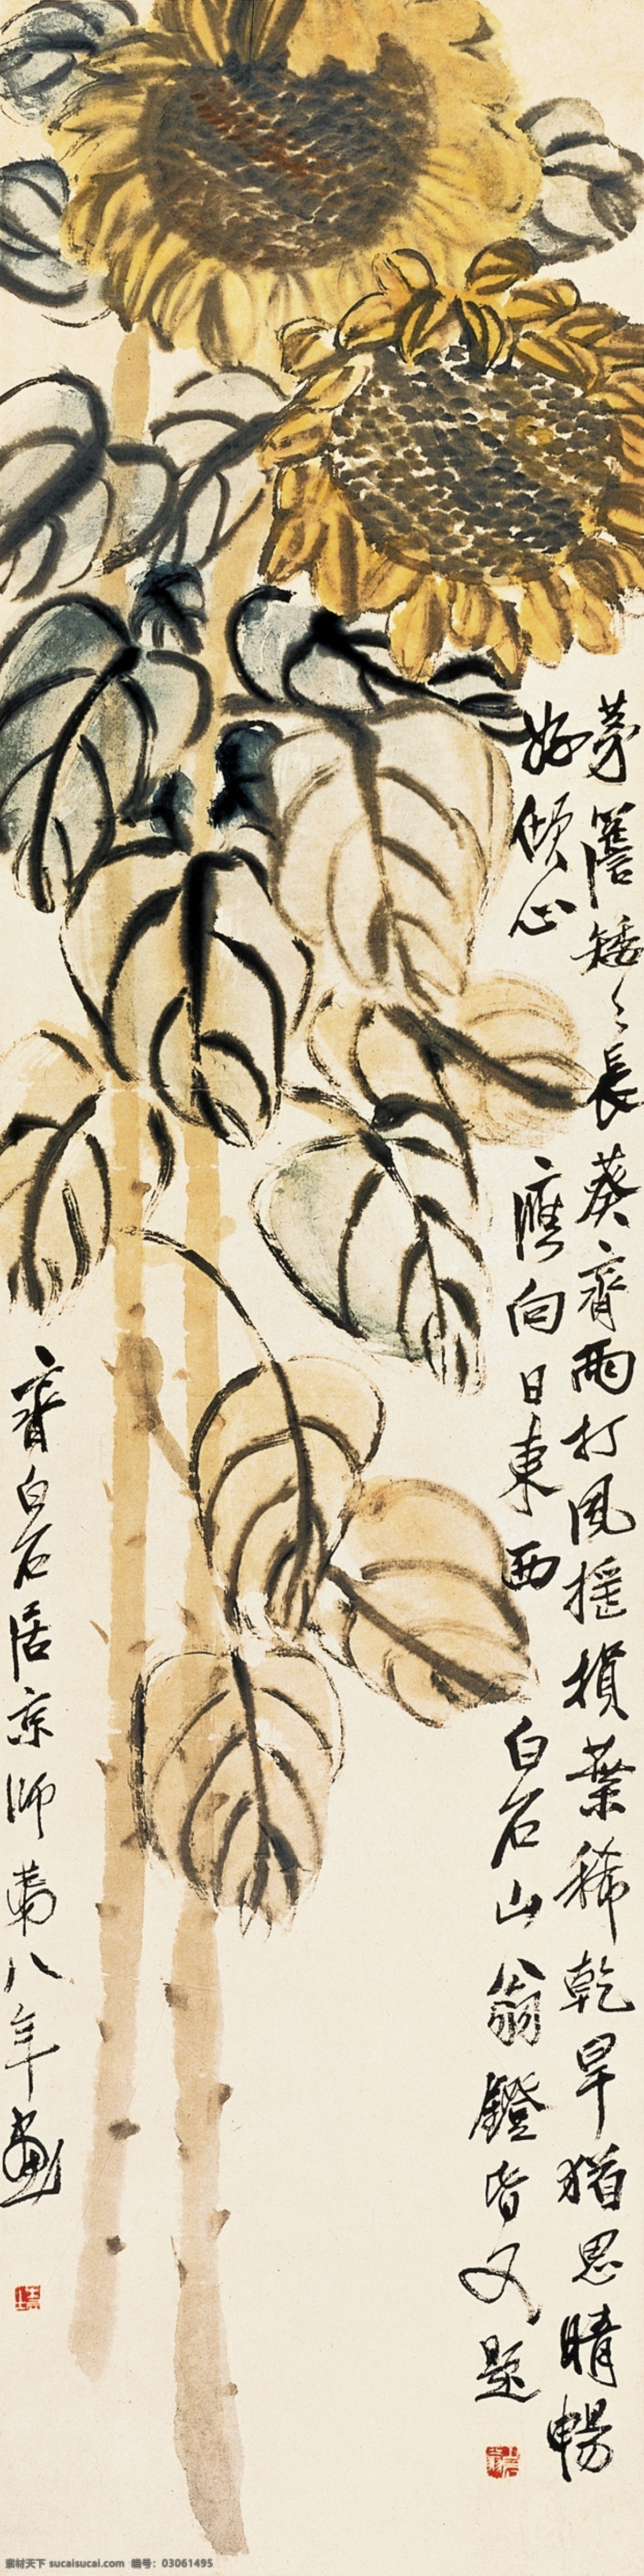 茅簷矮々長葵齊雨打風搖損葉稀乾旱猶思晴暢
好傾心應向日東西白石山翁鐙昏又題
齊白石居京師第八年畫
素材天下 sucaisucai.com 编号：03061495